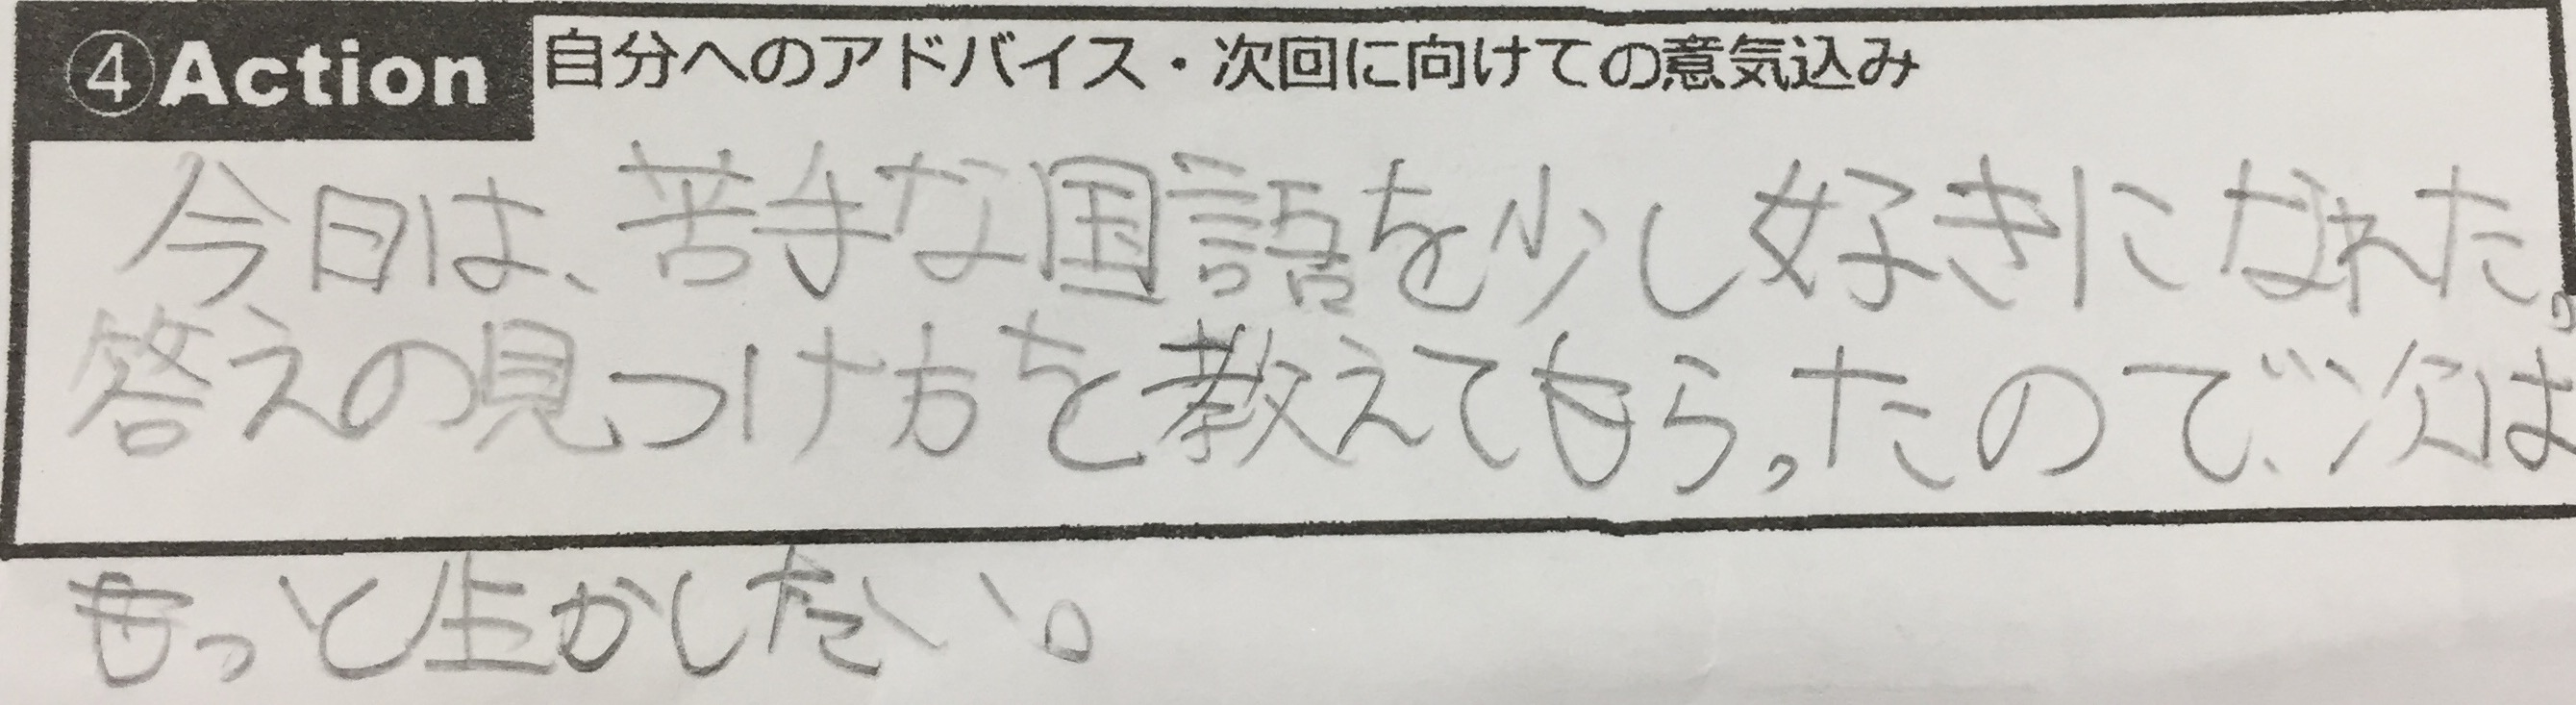 ④Action 自分へのアドバイス・次回に向けての意気込み
今日は、苦手な国語を少し好きになれた。
答えの見つけ方を教えてもらったので、次は
もっと生かしたい。